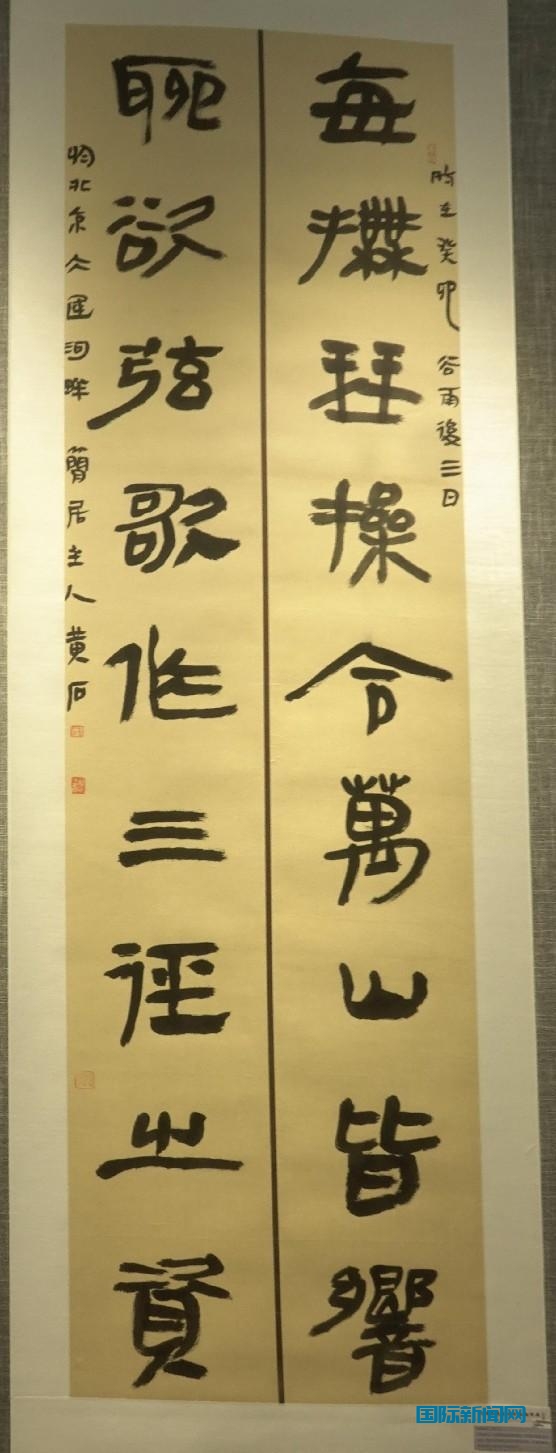 時在癸卯 谷雨後三日
每撫琴操令萬山皆響
聊欲弦歌作三徑之資
於北京大運河畔 簡居主人黄石
国际新闻网